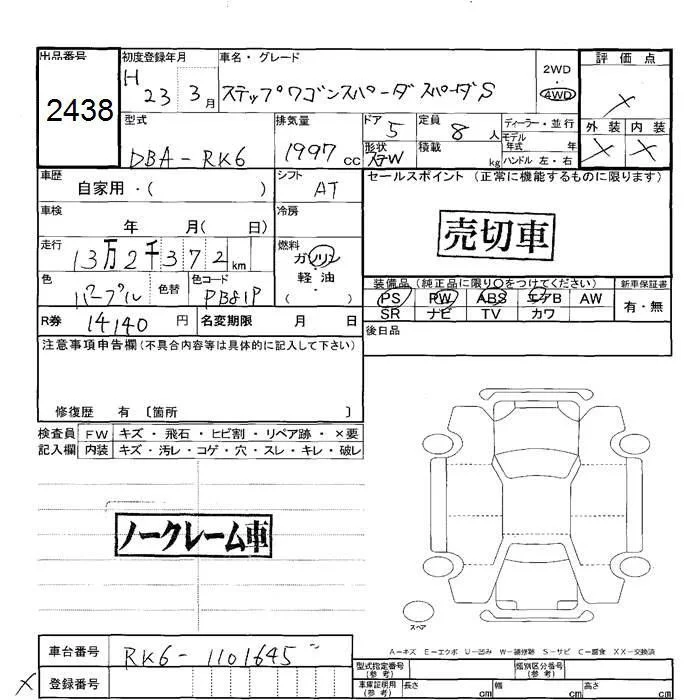 出品番号 初度登録年月 車名・グレード 2WD 評価点
2438 H 23 3月 ステップワゴンスパーダ スパーダS 4WD ×
型式 排気量 ドア 5 定員 8人 ディーラー・並行 外装 内装
DBA-RK6 1997cc 形状 ステW 積載 kg モデル年式 年 × ×
ハンドル 左・右
車歴 自家用・( ) シフト AT セールスポイント (正常に機能するものに限ります)
車検 年 月( 日) 冷房 売切車
走行 13万2千372km 燃料 ガソリン
軽・油
( )
色 パープル 色替 色コード PB81P 装備品(純正品に限り○をつけてください) 新車保証書
PS PW ABS エアB AW 有・無
R券 14140円 名変期限 月 日 SR ナビ TV カワ
後日品
注意事項申告欄(不具合内容等は具体的に記入して下さい)
修復歴 有 〔箇所 〕
検査員 FW キズ・飛石・ヒビ割・リペア跡・×要
記入欄 内装 キズ・汚レ・コゲ・穴・スレ・キレ・破レ
ノークレーム車
スペア
A=キズ E=エクボ U=凹み W=補修跡 S=サビ C=腐食 XX=交換済
車台番号 RK6-1101645
型式指定番号(参考) 類別区分番号(参考)
× 登録番号
車庫証明用(参考) 長さ cm 幅 cm 高さ cm